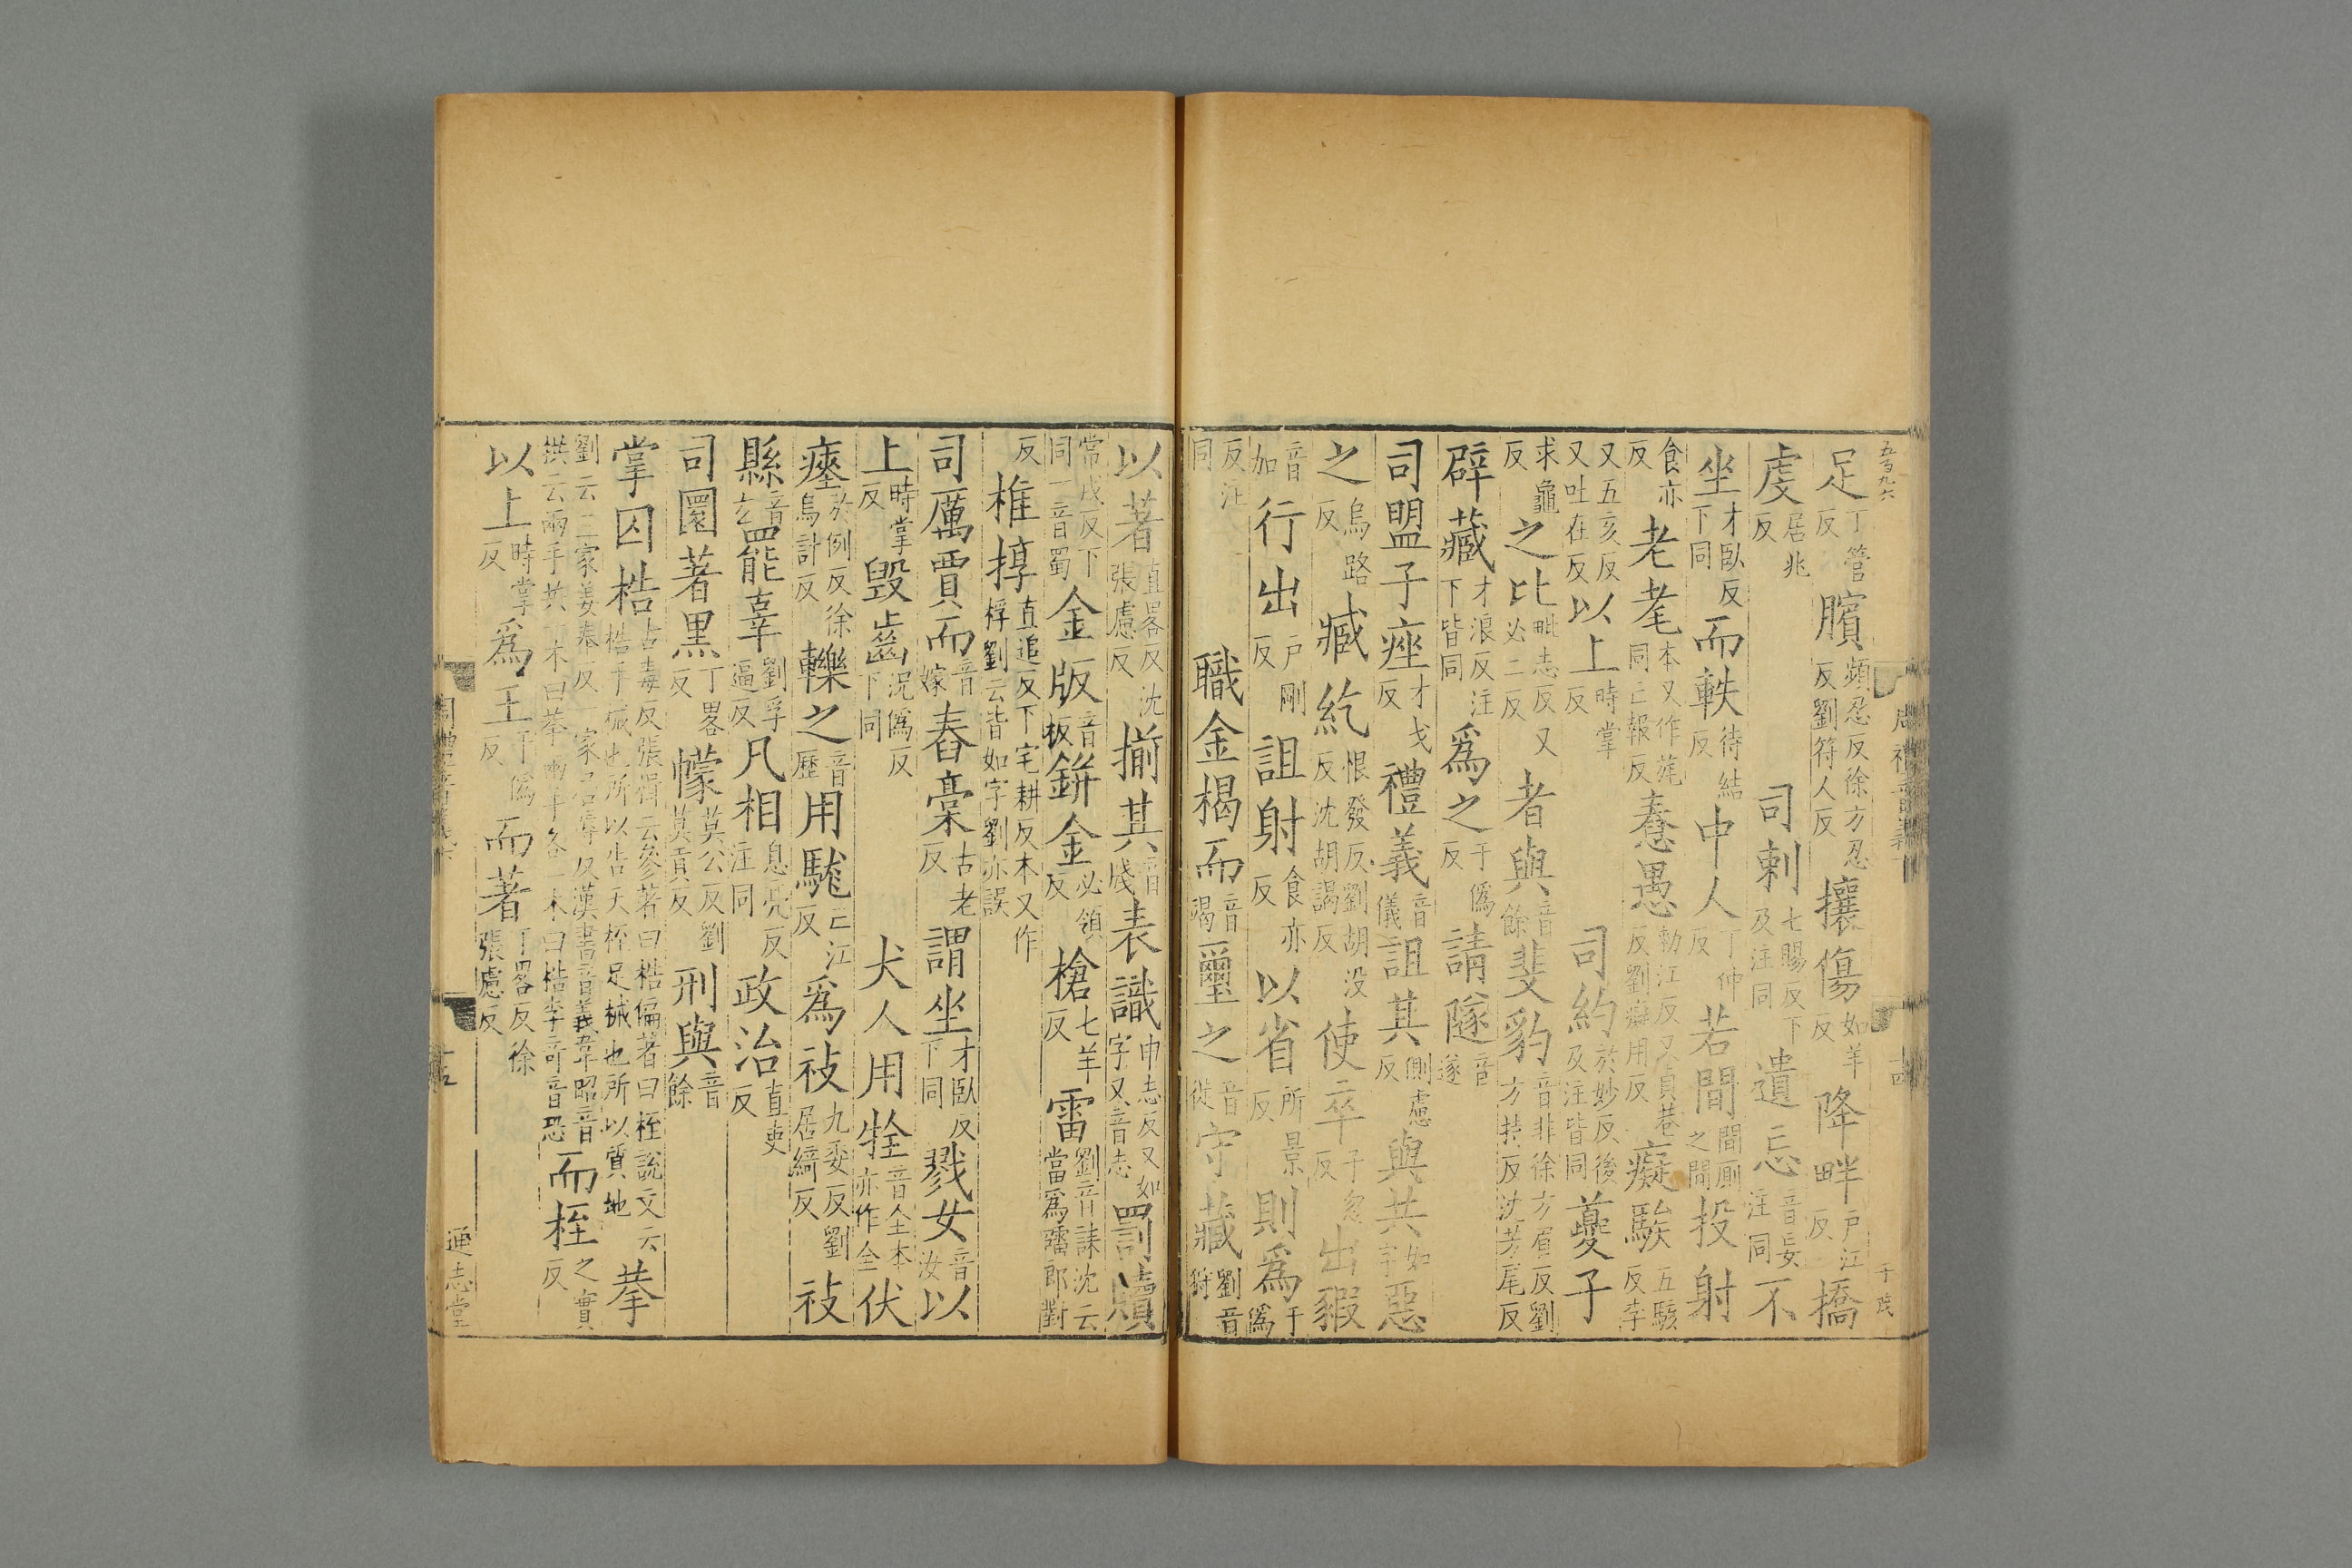 五百九六
足丁管反臏頻忍反徐方忍反劉符人反攘傷如羊反降畔戶江反撟
虔居兆反 司刺七賜反下及注同遺忘音妄注同不
坐才臥反下同而軼待結反中人丁仲反若間間廁之間投射
食亦反老耄本又作旄同亡報反惷愚勑江反又貞巷反劉癡用反癡騃五駭反李
又五亥反又吐在反以上時掌反 司約於妙反後及注皆同夔子
求龜反之比毗志反又必二反者與音餘斐豹音非徐方眉反劉方持反沈芳尾反
辟藏才浪反注下皆同爲之于僞反請隧音遂
司盟子痤才戈反禮義音儀詛其側慮反與共如字惡
之烏路反臧紇恨發反劉胡沒反沈胡謁反使卒子忽反出豭
音加行出戶剛反詛射食亦反以省所景反則爲于僞
反注同 職金楬而音竭璽之音徙守藏劉音狩
以著直畧反沈張慮反揃其音牋表識申志反又如字又音志罰贖
常戍反下同一音蜀金版音板鉼金必領反槍七羊反雷劉音誄沈云當爲礌郎對
反椎椁直追反下宅耕反本又作桴劉云皆如字劉亦誤
司厲賈而音嫁舂槀古老反謂坐才臥反下同戮女音汝以
上時掌反毀齒況僞反下同 犬人用牷音全本亦作全伏
瘞於例反徐烏計反轢之音歷用駹亡江反爲䄏九委反劉居綺反䄏
縣音玄罷辜劉孚逼反凡相息亮反注同政治直吏反
司圜著黑丁畧反幪莫公反劉莫貢反刑與音餘
掌囚梏古毒反張揖云參著曰梏偏著曰桎說文云梏手械也所以告天桎足械也所以質地拲
劉云三家姜奉反一家居辱反漢書音義韋昭音拱云兩手共一木曰拲兩手各一木曰梏李奇音恐而桎之實反
以上時掌反爲王于僞反而著丁畧反徐張慮反
通志堂